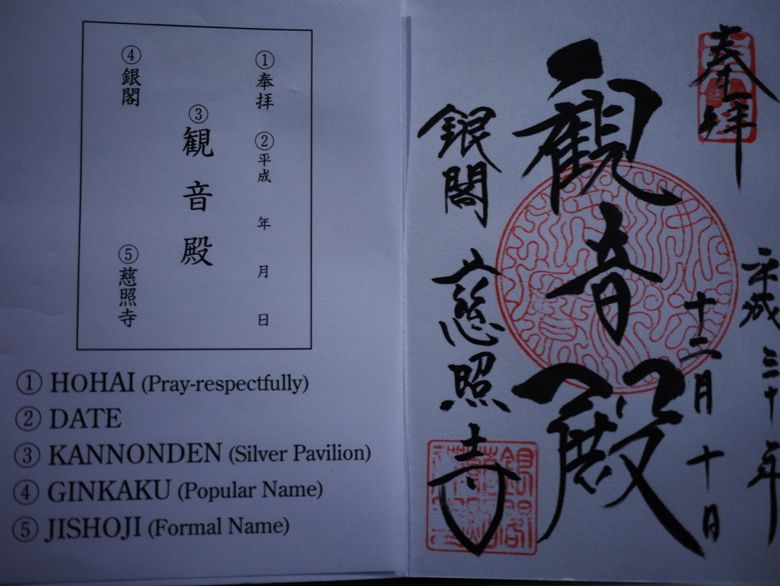 ①奉拝
②平成 年 月 日
③観音殿
④銀閣
⑤慈照寺
① HOHAI (Pray-respectfully)
② DATE
③ KANNONDEN (Silver Pavilion)
④ GINKAKU (Popular Name)
⑤ JISHOJI (Formal Name)
奉拝
平成三十年
十二月十日
観音殿
銀閣
慈照寺